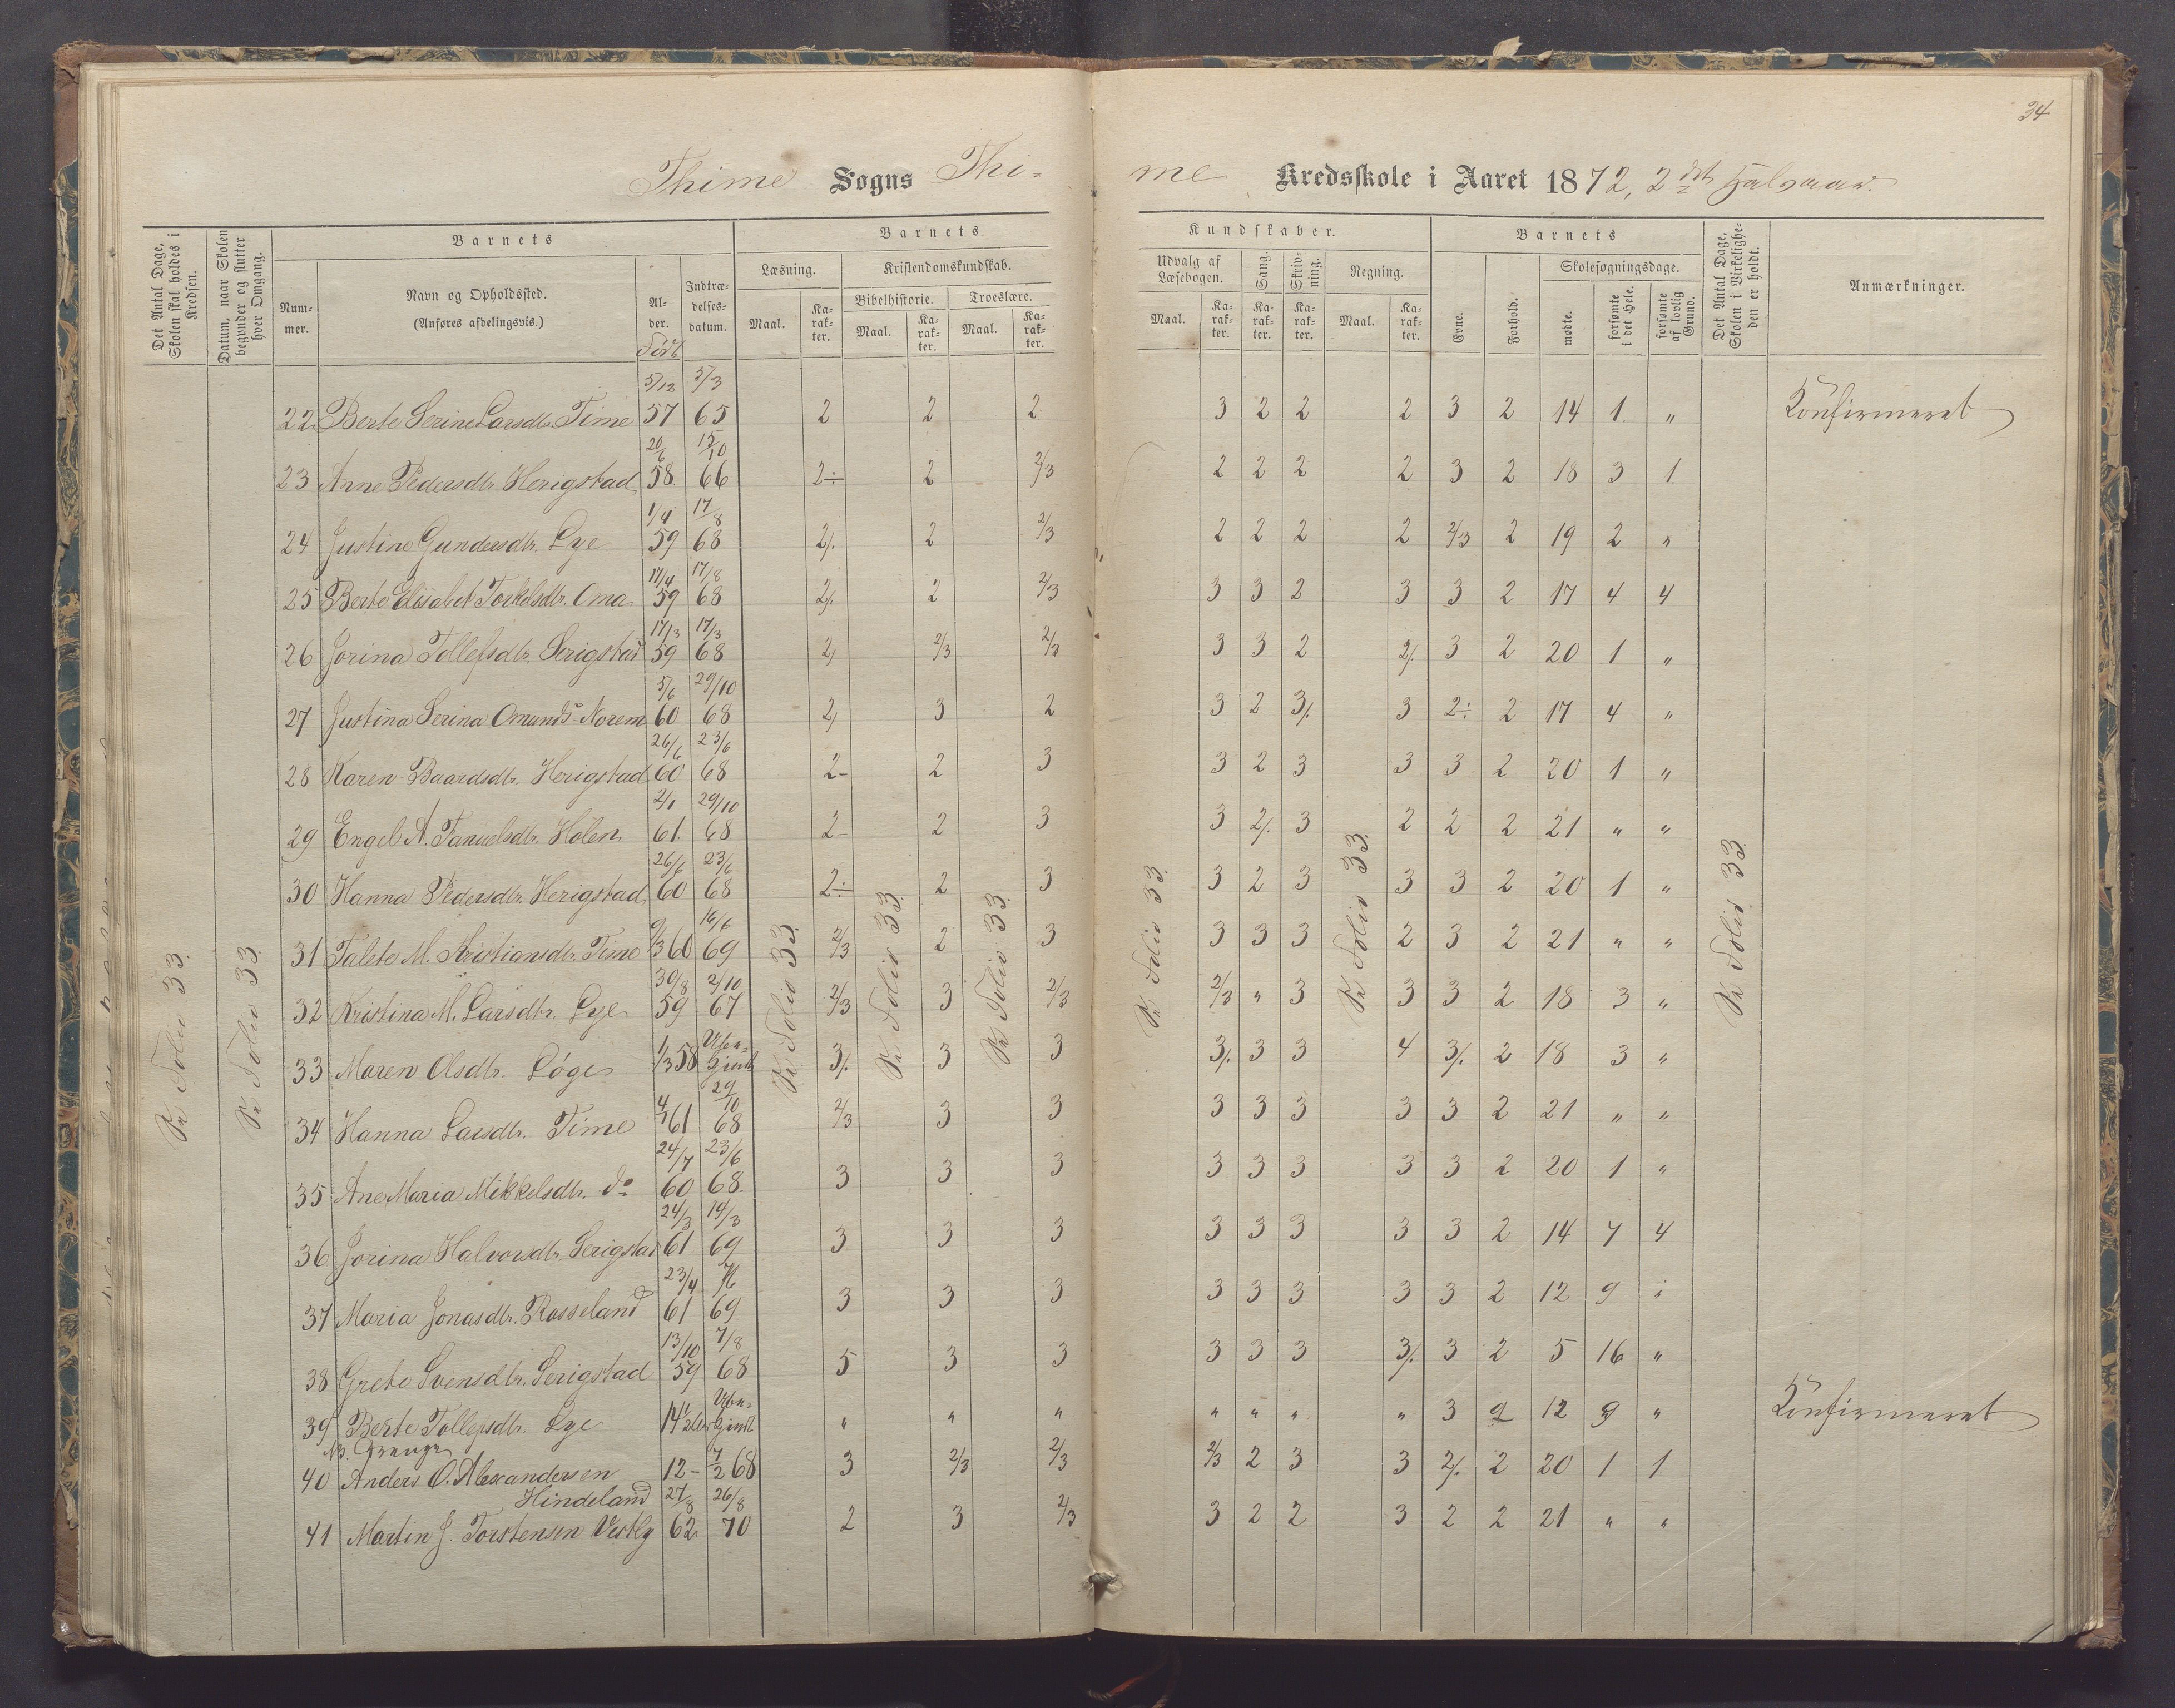 34
Thime Sogns Thime Kredsskole i Aaret 1872, 2det Halvaar.
Det Antal Dage, Skolen skal holdes i Kredsen.
Datum, naar Skolen begynder og slutter hver Omgang.
Barnets
Nummer.
Navn og Opholdssted.
(Anføres afdelingsvis.)
Alder.
Født
Indtrædelsesdatum.
Barnets
Læsning.
Maal.
Karakter.
Kristendomskundskab.
Bibelhistorie.
Maal.
Karakter.
Troeslære.
Maal.
Karakter.
Kundskaber.
Udvalg af Læsebogen.
Maal.
Karakter.
Sang.
Karakter.
Skrivning.
Karakter.
Regning.
Maal.
Karakter.
Barnets
Evne.
Forhold.
Skolesøgningsdage.
mødte.
forsømte i det Hele.
forsømte af lovlig Grund.
Det Antal Dage, Skolen i Virkeligheden er holdt.
Anmærkninger.
22 Berte Serine Larsdtr. Time 5/12 57 5/3 65 2 2 2 3 2 2 2 3 2 14 1. " Konfirmeret
23 Anne Pedersdtr. Herigstad 20/6 58. 15/10 66 2÷ 2 2/3 2 2 2 2 3 2 18 3 1.
24 Justine Gundersdtr. Lye 1/4 59 17/8 68 2/. 2 2/3 2 2 2 2 2/3 2 19 2 "
25 Berte Elisabet Torkelsdtr. Oma 17/4 59 17/8 68 2/. 2 2/3 3 3 2 3 3 2 17 4 4
26 Jorina Tollefsdtr. Serigstad 17/3 59 17/3 68 2/ 2/3 2/3 3 3 2 2/. 3 2 20 1 "
27 Justina Serina Omunds- Norem 5/6 60 29/10 68 2/ 3 2 3 2 3/. 3 2÷ 2 17 4 "
28 Karen Baardsdtr. Herigstad 26/6 60 23/6 68 2- 2 3 3 2 3 3 3 2 20 1 "
29 Engel A. Tanuelsdtr. Holen 2/1 61. 29/10 68 2- 2 3 3 2/. 3 2 2 2 21 " "
30 Hanna Pedersdtr. Herigstad 26/6 60 23/6 68 2÷ 2 3 3 2 3 3 3 2 20 1 "
31 Talete M. Kristiansdtr. Time 9/3 60 16/6 69 2/3 2 3 3 3 3 2 3 2 21 " "
32 Kristina M. Larsdtr. Lye 30/8 59 2/10 67 2/3 3 2/3 2/3 " 3 3 3 2 18 3 "
33 Maren Olsdtr. Løge 1/3 58 3/. 3 3 3/. 3 3 4 3/. 2 18 3 "
34 Hanna Larsdtr. Time 4/1 61 29/10 68 2/3 3 3 3 3 3 3 3 2 21 " "
35 Ane Maria Mikkelsdtr. do 24/7 60 23/6 68. 3 3 3 3 3 3 3 3 2 20 1 "
36 Jorina Halvorsdtr. Serigstad 24/3 61 14/3 69 3 3 3 3 3 3 3 3 2 14 7 4
37 Maria Jonasdtr. Rosseland 23/4 61 69 3 3 3 3 3 3 3 3 2 12 9
38 Grete Svensdtr. Serigstad 13/10 59 7/8 68 5 3 3 3 3 3 3/. 3 2 5 16 "
39 Berte Tollefsdtr. Lye 14 1/2 " " " " " " " 3 2 12 9 " Konfirmeret
NB. Drenge
40 Anders O. Alexandersen 12- 7/2 68 3 2/3 2/3 2/3 2 3 3 2/. 2 20 1 1
Hindeland
41 Martin J. Torstensen Vestly 27/8 62 26/8 70 2 3 2/3 3 2 2 3 2 2 21 " "
Folio 33.
Folio 33.
Folio 33.
Folio 33.
Folio 33.
Folio 33.
Folio 33.
Folio 33.